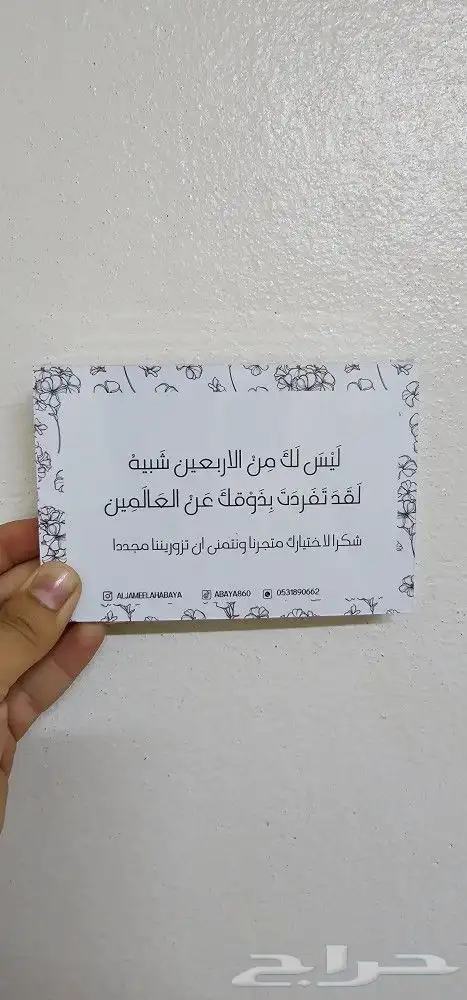 لَيْسَ لَكَ مِنْ الاربعين شَبيهُ
لَقَدَ تَفَردَتَ بِذَوْقكَ عَنْ العَالَمِين
شكرا لاختيارك متجرنا ونتمنى ان تزوريننا مجددا
ALJAMEELAHABAYA ABAYA860 0531890662
حراج